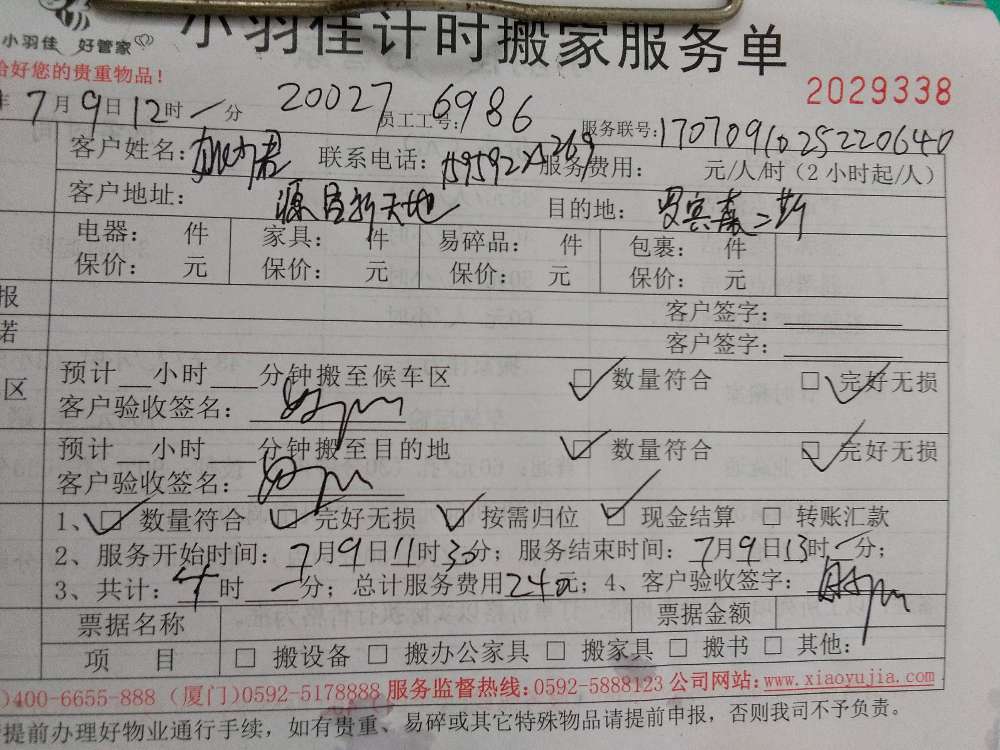 小羽佳 好管家
小羽佳计时搬家服务单
给好您的贵重物品!
2029338
年7月9日12时一分 20027 员工工号: 6986 服务联号: 1707091025220640
客户姓名: 联系电话: 服务费用: 元/人/时(2小时起/人)
客户地址: 源昌新天地 目的地: 罗宾森二期
电器: 件 家具: 件 易碎品: 件 包裹: 件
保价: 元 保价: 元 保价: 元 保价: 元
报 客户签字:
若 客户签字:
预计 小时 分钟搬至候车区 ☑ 数量符合 ☑ 完好无损
区 客户验收签名:
预计 小时 分钟搬至目的地 ☑ 数量符合 ☑ 完好无损
客户验收签名:
1、☑ 数量符合 ☑ 完好无损 ☑ 按需归位 ☑ 现金结算 □ 转账汇款
2、服务开始时间: 7月9日11时30分; 服务结束时间: 7月9日13时一分;
3、共计: 时一分; 总计服务费用240元; 4、客户验收签字:
票据名称 票据金额
项 目 □ 搬设备 □ 搬办公家具 □ 搬家具 □ 搬书 □ 其他:
)400-6655-888 (厦门)0592-5178888 服务监督热线:0592-5888123 公司网站:www.xiaoyujia.com
提前办理好物业通行手续，如有贵重、易碎或其它特殊物品请提前申报，否则我司不予负责。